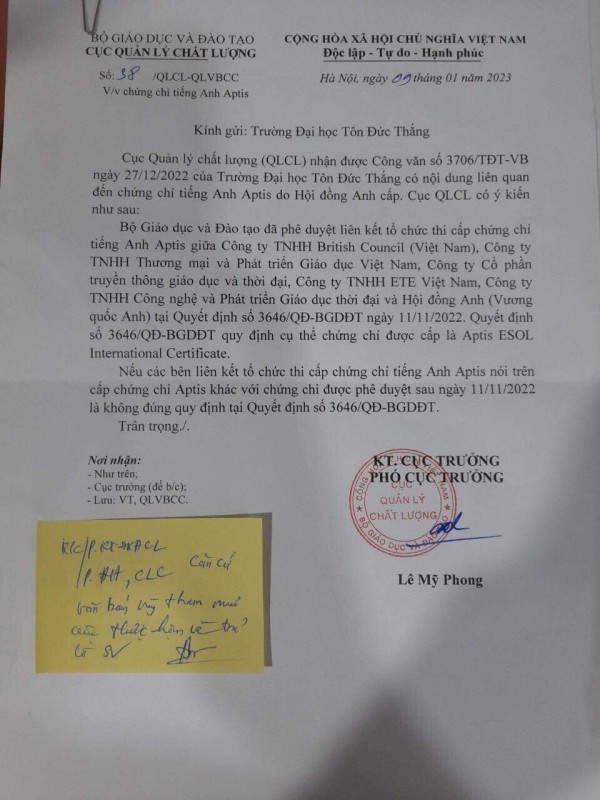 BỘ GIÁO DỤC VÀ ĐÀO TẠO
CỤC QUẢN LÝ CHẤT LƯỢNG
Số: 38 /QLCL-QLVBCC
V/v chứng chỉ tiếng Anh Aptis
CỘNG HÒA XÃ HỘI CHỦ NGHĨA VIỆT NAM
Độc lập - Tự do - Hạnh phúc
Hà Nội, ngày 09 tháng 01 năm 2023
Kính gửi: Trường Đại học Tôn Đức Thắng
Cục Quản lý chất lượng (QLCL) nhận được Công văn số 3706/TĐT-VB
ngày 27/12/2022 của Trường Đại học Tôn Đức Thắng có nội dung liên quan
đến chứng chỉ tiếng Anh Aptis do Hội đồng Anh cấp. Cục QLCL có ý kiến
như sau:
Bộ Giáo dục và Đào tạo đã phê duyệt liên kết tổ chức thi cấp chứng chỉ
tiếng Anh Aptis giữa Công ty TNHH British Council (Việt Nam), Công ty
TNHH Thương mại và Phát triển Giáo dục Việt Nam, Công ty Cổ phần
truyền thông giáo dục và thời đại, Công ty TNHH ETE Việt Nam, Công ty
TNHH Công nghệ và Phát triển Giáo dục thời đại và Hội đồng Anh (Vương
quốc Anh) tại Quyết định số 3646/QĐ-BGDĐT ngày 11/11/2022. Quyết định
số 3646/QĐ-BGDĐT quy định cụ thể chứng chỉ được cấp là Aptis ESOL
International Certificate.
Nếu các bên liên kết tổ chức thi cấp chứng chỉ tiếng Anh Aptis nói trên
cấp chứng chỉ Aptis khác với chứng chỉ được phê duyệt sau ngày 11/11/2022
là không đúng quy định tại Quyết định số 3646/QĐ-BGDĐT.
Trân trọng./.
Nơi nhận:
- Như trên;
- Cục trưởng (để b/c);
- Lưu: VT, QLVBCC.
KT. CỤC TRƯỞNG
PHÓ CỤC TRƯỞNG
CỤC
QUẢN LÝ
CHẤT LƯỢNG
BỘ GIÁO DỤC VÀ ĐÀO TẠO
Lê Mỹ Phong
CLC Căn cứ
văn bản này tham mưu